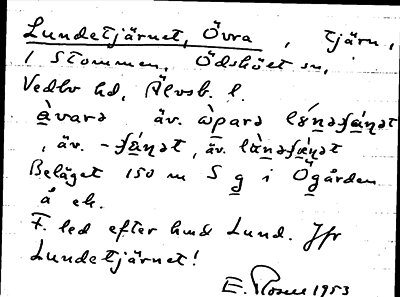 Lundetjärnet, Övra, tjärn,
i Stommen, Ödskölt sn,
Vedbo hd, Älvsb. l.
àvarə äv. ѡ̀parə
, äv. äv.
Beläget 150 m S g i Ögården
å ek.
F. led efter hmd Lund. Jfr
Lundetjärnet!
E. Rosell 1953